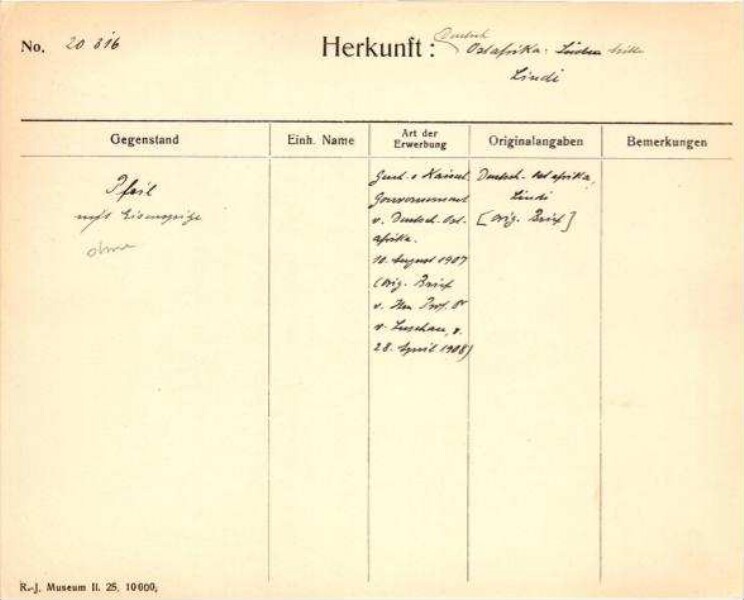 No. 20 816
Herkunft: Deutsch Ostafrika.
Lindi
Gegenstand
Einh. Name
Art der
Erwerbung
Originalangaben
Bemerkungen
Pfeil
Eisenspitze
ohne
Gesch. v Kaiserl.
Gouvernement
v. Deutsch-Ost-
afrika.
10. August 1907
(orig. Brief
v. Hrn Prof. Dr
v. Luschan, v.
28. April 1908)
Deutsch-Ostafrika,
Lindi
[orig. Brief]
R.-J. Museum II. 25. 10000,